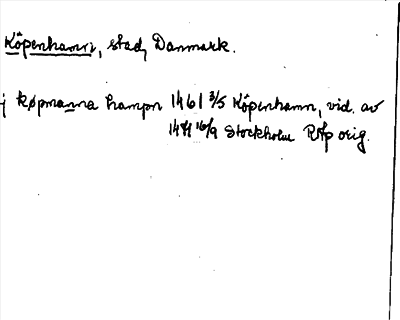 Köpenhamn, stad, Danmark.
j køpmanna hampn 1461 3/5 Köpenhamn, vid. av
16/9 Stockholm RAp orig.